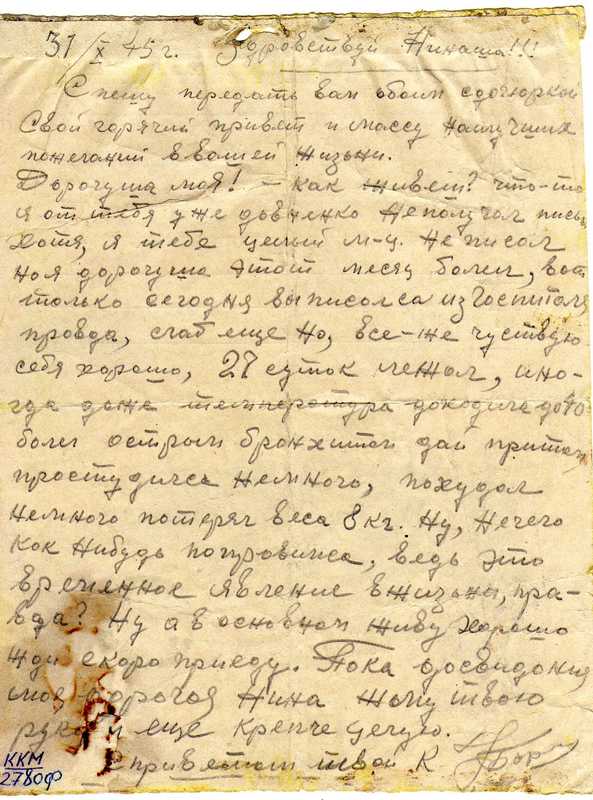 31/X 45 г. Здровствуй Нинаша!!!
Спешу передать вам обоим сдочюркой
Свой горячий привет и массу наилучших
пожеганий в вашей жизьни.
Дорогуша моя! – как живеш? что-то
я от тебя уже довненко неполучал письм
Хотя, я тебе целый м-ц. не писал
ноя дорогуша этот месяц болел, вот
только сегодня выписолса из госпиталя
правда, слаб еще но, все-же чуствую
себя хорошо, 27 суток лежал, ино-
гда даже температура доходила до 40
болел острым бронхитом дай притом
простудилсь немного, похудал
немного потерял веса 8 кг. Ну, нечего
как нибудь попровимса, ведь это
временное явление в жизьни, пра-
вда? Ну а в основном живу хорошо
жди скоро приеду. Пока досвидания
моя дорогая Нина жому твою
руку и еще крепче целую.
с приветом твой К
ККМ
2780ф